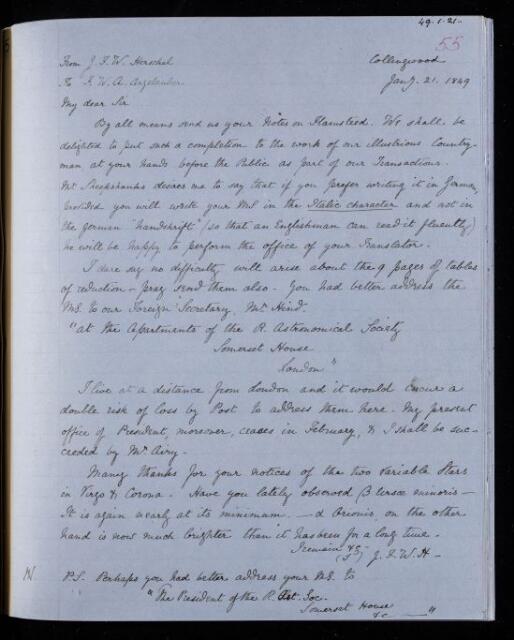 49.1.21-
55
From J. F. W. Herschel
Collingwood
To F. W. A. Argelander
Jany. 21. 1849
My dear Sir
By all means send us your Notes on Flamsteed. We shall be
delighted to put such a completion to the work of our illustrious Country-
man at your hands before the Public as part of our Transactions.
Mr Sheepshanks desires me to say that if you prefer writing it in German,
provided you will write your MS in the Italic character and not in
the German "handschrift" (so that an Englishman can read it fluently)
he will be happy to perform the office of your Translator.
I dare say no difficulty will arise about the 9 pages of tables
of reduction - pray send them also. You had better address the
MS. to our Foreign Secretary, Mr. Hind.
"at the Apartments of the R. Astronomical Society
Somerset House
London"
I live at a distance from London and it would incur a
double risk of loss by Post to address them here. My present
office of President, moreover, ceases in February, & I shall be suc-
ceeded by Mr Airy.
Many thanks for your notices of the two variable Stars
in Virgo & Corona. Have you lately observed β Ursæ minoris -
It is again nearly at its minimum. - α Orionis, on the other
hand is now much brighter than it has been for a long time.
I remain
J. F. W. H -
N
P.S. Perhaps you had better address your MS. to
"The President of the R. Ast. Soc.
Somerset House
&c ——"